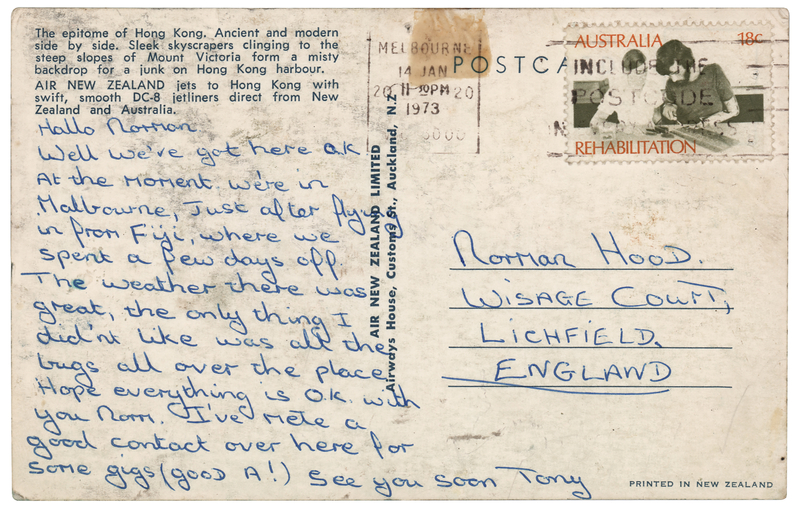 The epitome of Hong Kong. Ancient and modern
side by side. Sleek skyscrapers clinging to the
steep slopes of Mount Victoria form a misty
backdrop for a junk on Hong Kong harbour.
AIR NEW ZEALAND jets to Hong Kong with
swift, smooth DC-8 jetliners direct from New
Zealand and Australia.
Hallo Norman
Well we've got here O.K.
At the moment we're in
Malbourne, Just after flying
in from Fiji, where we
spent a few days off.
The weather there was
great, the only thing I
did'nt like was all the
bugs all over the place
Hope everything is O.K. with
you Norm. I've mete a
good contact over here for
some gigs (good A!) See you soon Tony
AIR NEW ZEALAND LIMITED
Airways House, Customs St., Auckland, N.Z.
POSTCA
MELBOURNE
14 JAN
20 11-30PM 20
1973
INCLUDE THE
POSTCODE
AUSTRALIA 18c
REHABILITATION
Norman Hood.
Wisage Court,
LICHFIELD.
ENGLAND
PRINTED IN NEW ZEALAND